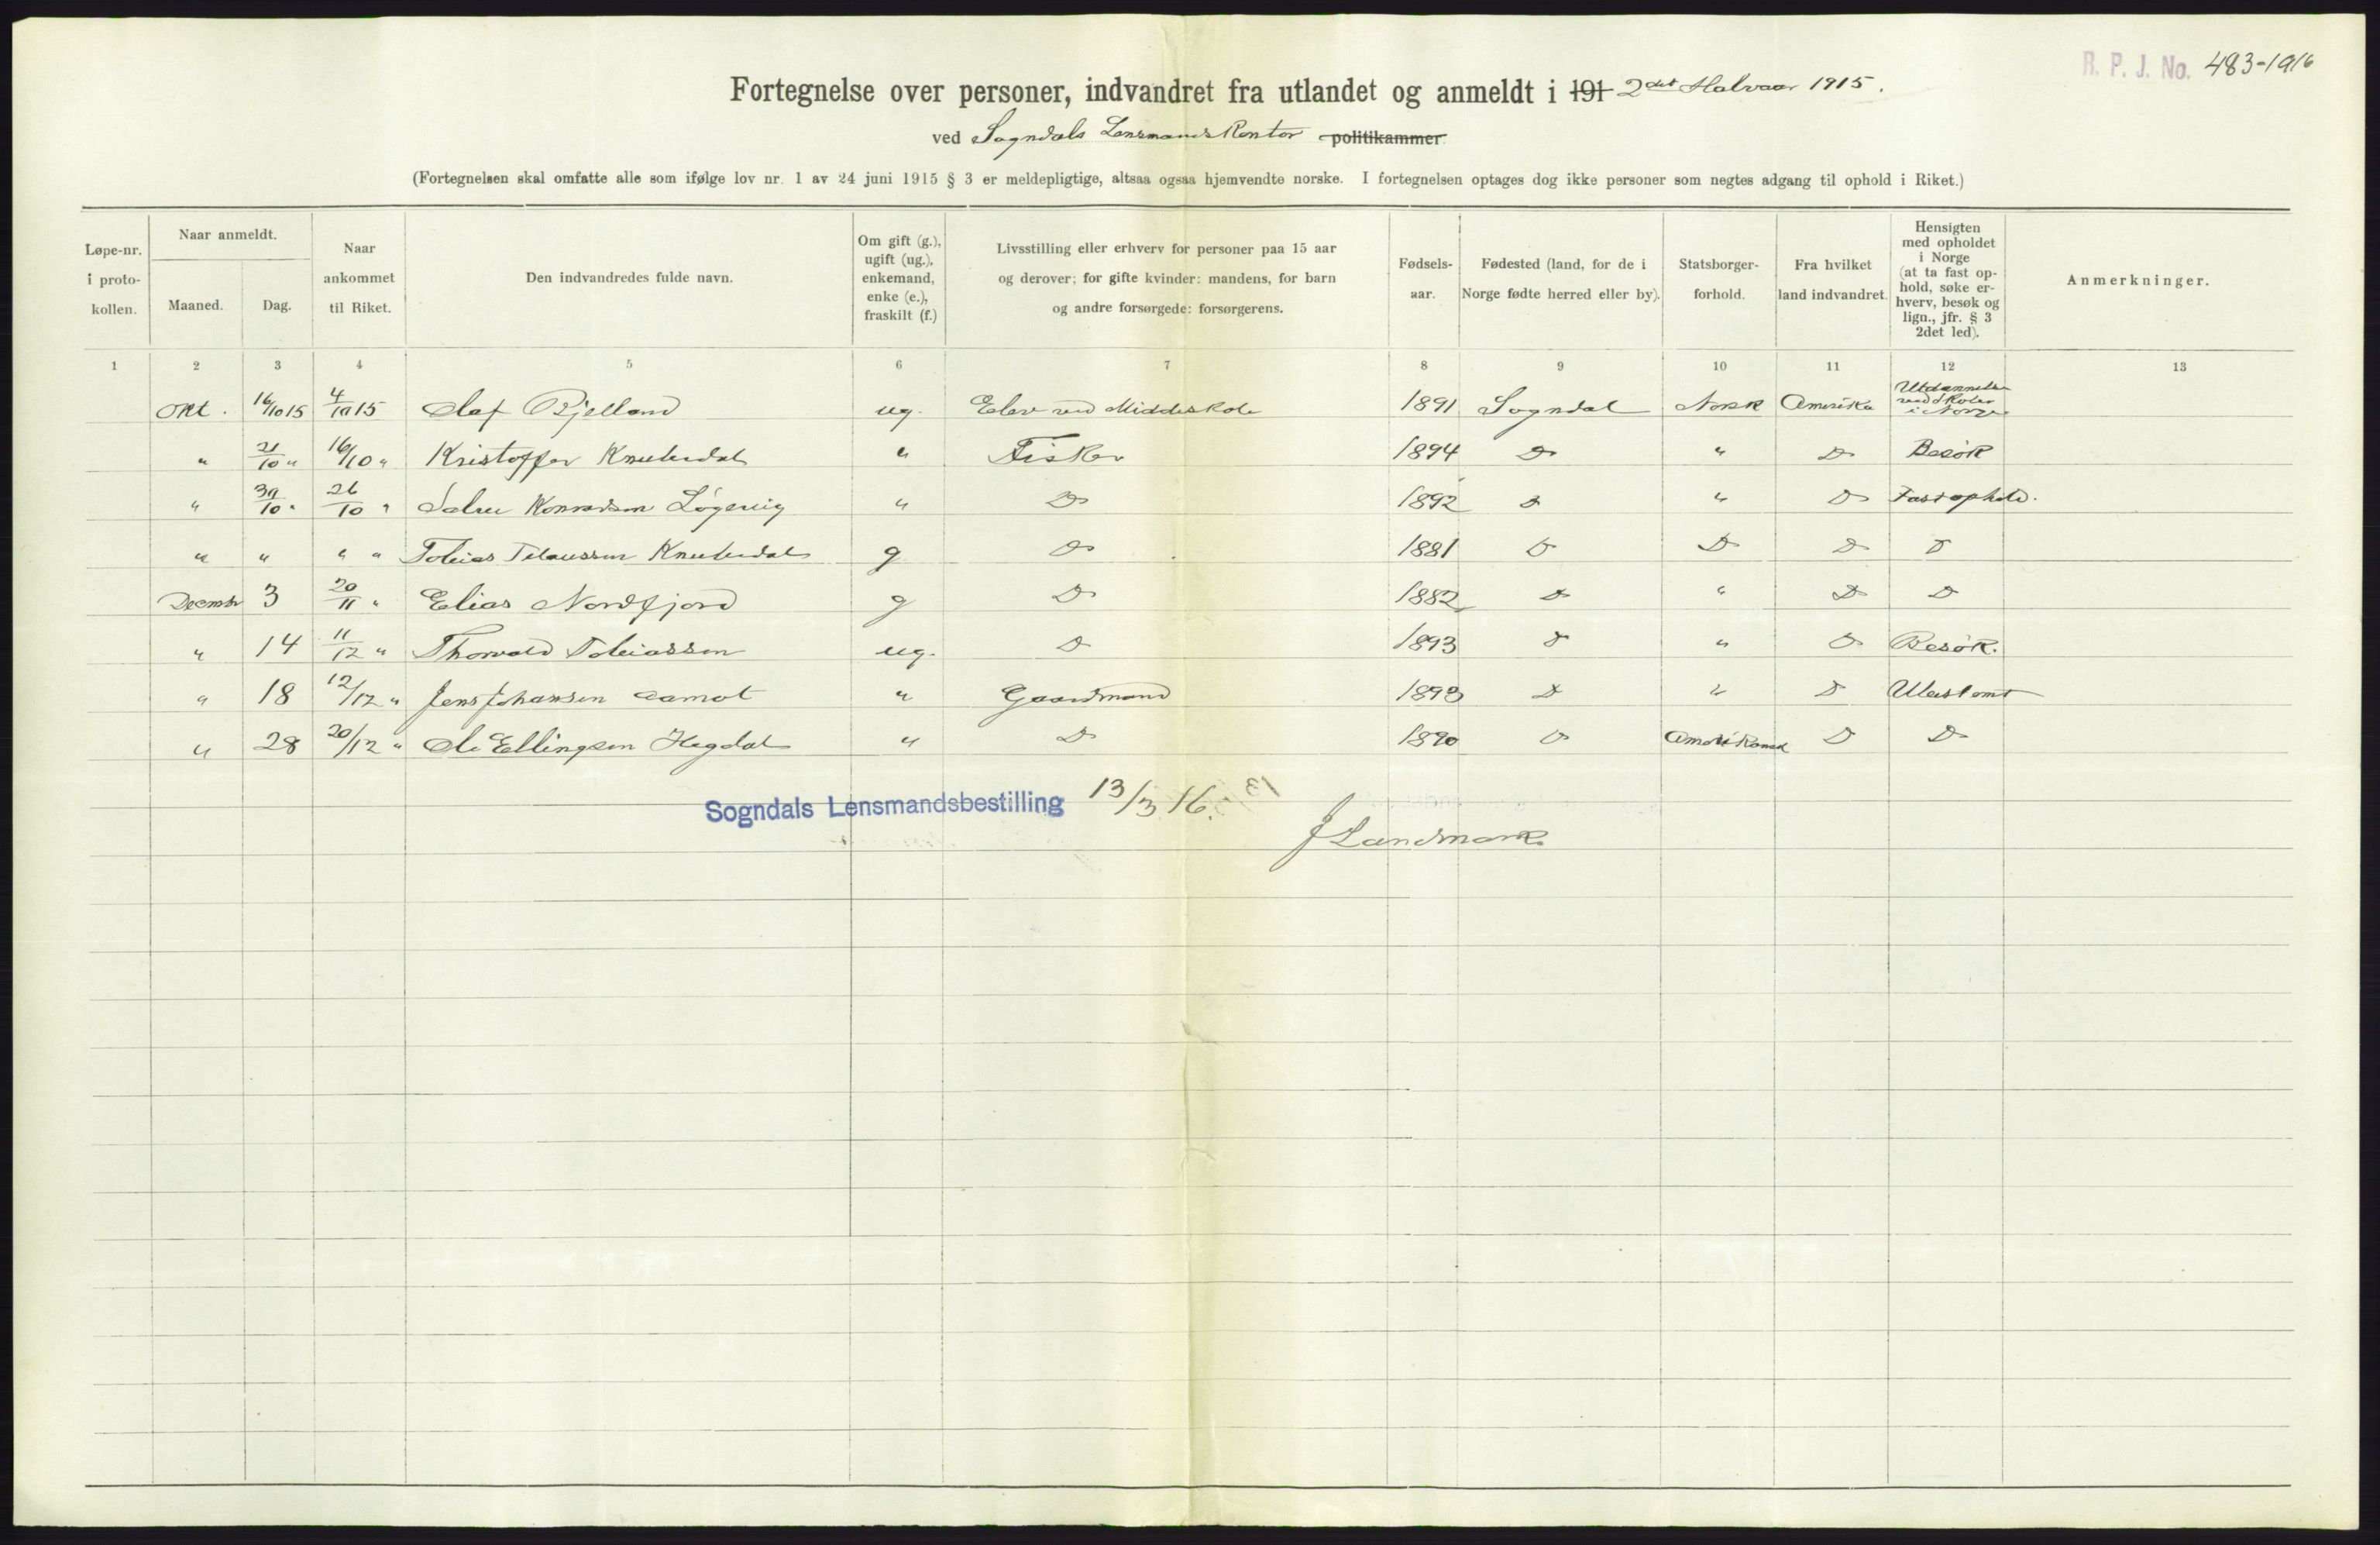 R. P. J. No. 483-1916
Fortegnelse over personer, indvandret fra utlandet og anmeldt i 191 2det Halvaar 1915.
ved Sogndals Lensmandskontor politikammer
(Fortegnelsen skal omfatte alle som ifølge lov nr. 1 av 24 juni 1915 § 3 er meldepligtige, altsaa ogsaa hjemvendte norske. I fortegnelsen optages dog ikke personer som negtes adgang til ophold i Riket.)
Løpe-nr. i proto-kollen.
Naar anmeldt.
Maaned.
Dag.
Naar ankommet til Riket.
Den indvandredes fulde navn.
Om gift (g.), ugift (ug.), enkemand, enke (e.), fraskilt (f.)
Livsstilling eller erhverv for personer paa 15 aar og derover; for gifte kvinder: mandens, for barn og andre forsørgede: forsørgerens.
Fødsels-aar.
Fødested (land, for de i Norge fødte herred eller by).
Statsborger-forhold.
Fra hvilket land indvandret.
Hensigten med opholdet i Norge (at ta fast op-hold, søke er-hverv, besøk og lign., jfr. § 3 2det led).
Anmerkninger.
1 2 3 4 5 6 7 8 9 10 11 12 13
Okt. 16/10 15 4/10 15 Olaf Bjelland ug. Elev ved Middelskole 1891 Sogndal Norsk Amerika Utdannelse ved Skoler i Norge
" 21/10 " 16/10 " Kristoffer Knubedal " Fisker 1894 D " D Besøk
" 30/10 " 26/10 " Konradsen Løgevig " D 1892 D " D Fast ophold.
" " " " Tobias Knubedal g D 1881 D D D D
Decmbr 3 20/11 " Elias Nordfjord g D 1882 D " D D
" 14 11/12 " Thorvald Tobiassen ug. D 1893 D " D Besøk.
" 18 12/12 " Jens Johansen Aamot " Gaardmand 1893 D " D Ubestemt
" 28 20/12 " Ole Ellingsen Hegdal " D 1890 D Amerikansk D D
Sogndals Lensmandsbestilling 13/3 16.
J Landmark.